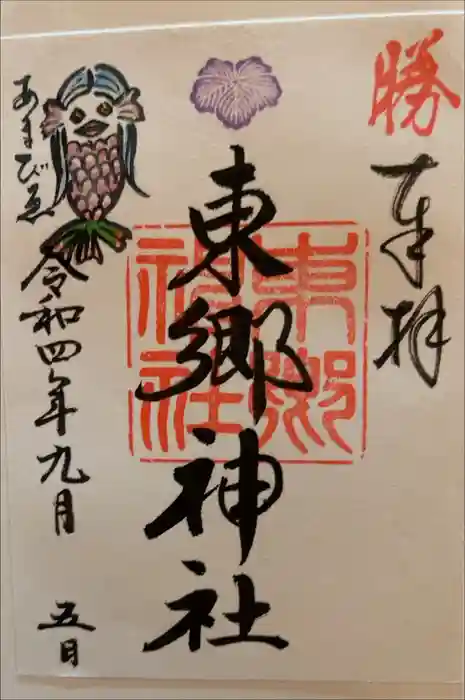 勝
奉拝
東郷神社
東郷
神社
あまびゑ
令和四年九月五日